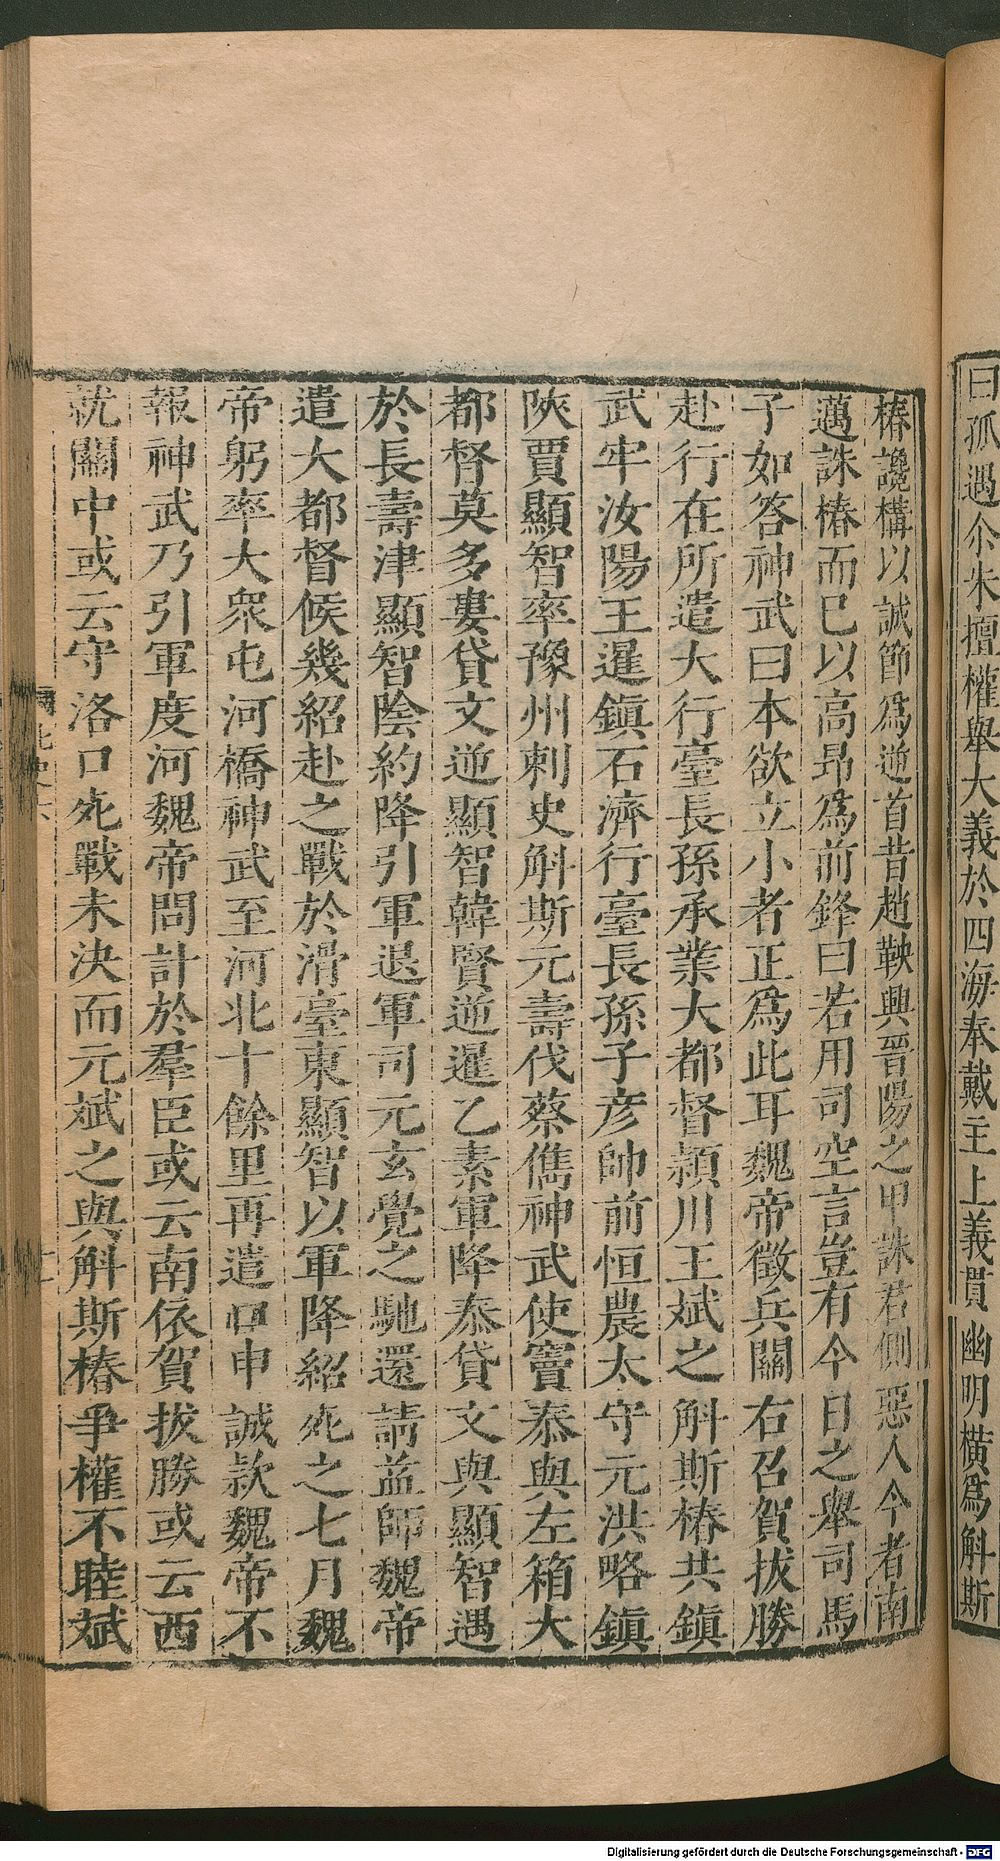 曰孤遇尒朱擅權舉大義於四海奉戴主上義貫幽明橫爲斛斯
椿讒構以誠節爲逆首昔趙鞅興晉陽之甲誅君側惡人今者南
邁誅椿而已以高昻爲前鋒曰若用司空言豈有今日之舉司馬
子如答神武曰本欲立小者正爲此耳魏帝徵兵關右召賀拔勝
赴行在所遣大行臺長孫承業大都督潁川王斌之斛斯椿共鎭
武牢汝陽王暹鎭石濟行臺長孫子彦帥前恒農太守元洪略鎭
陜賈顯智率豫州刺史斛斯元壽伐蔡儁神武使竇泰與左箱大
都督莫多婁貸文逆顯智韓賢逆暹乙素軍降泰貸文與顯智遇
於長壽津顯智陰約降引軍退軍司元玄覺之馳還請益師魏帝
遣大都督候幾紹赴之戰於滑臺東顯智以軍降紹死之七月魏
帝躬率大衆屯河橋神武至河北十餘里再遣口申誠款魏帝不
報神武乃引軍度河魏帝問計於羣臣或云南依賀拔勝或云西
就關中或云守洛口死戰未決而元斌之與斛斯椿爭權不睦斌
Digitalisierung gefördert durch die Deutsche Forschungsgemeinschaft - DFG